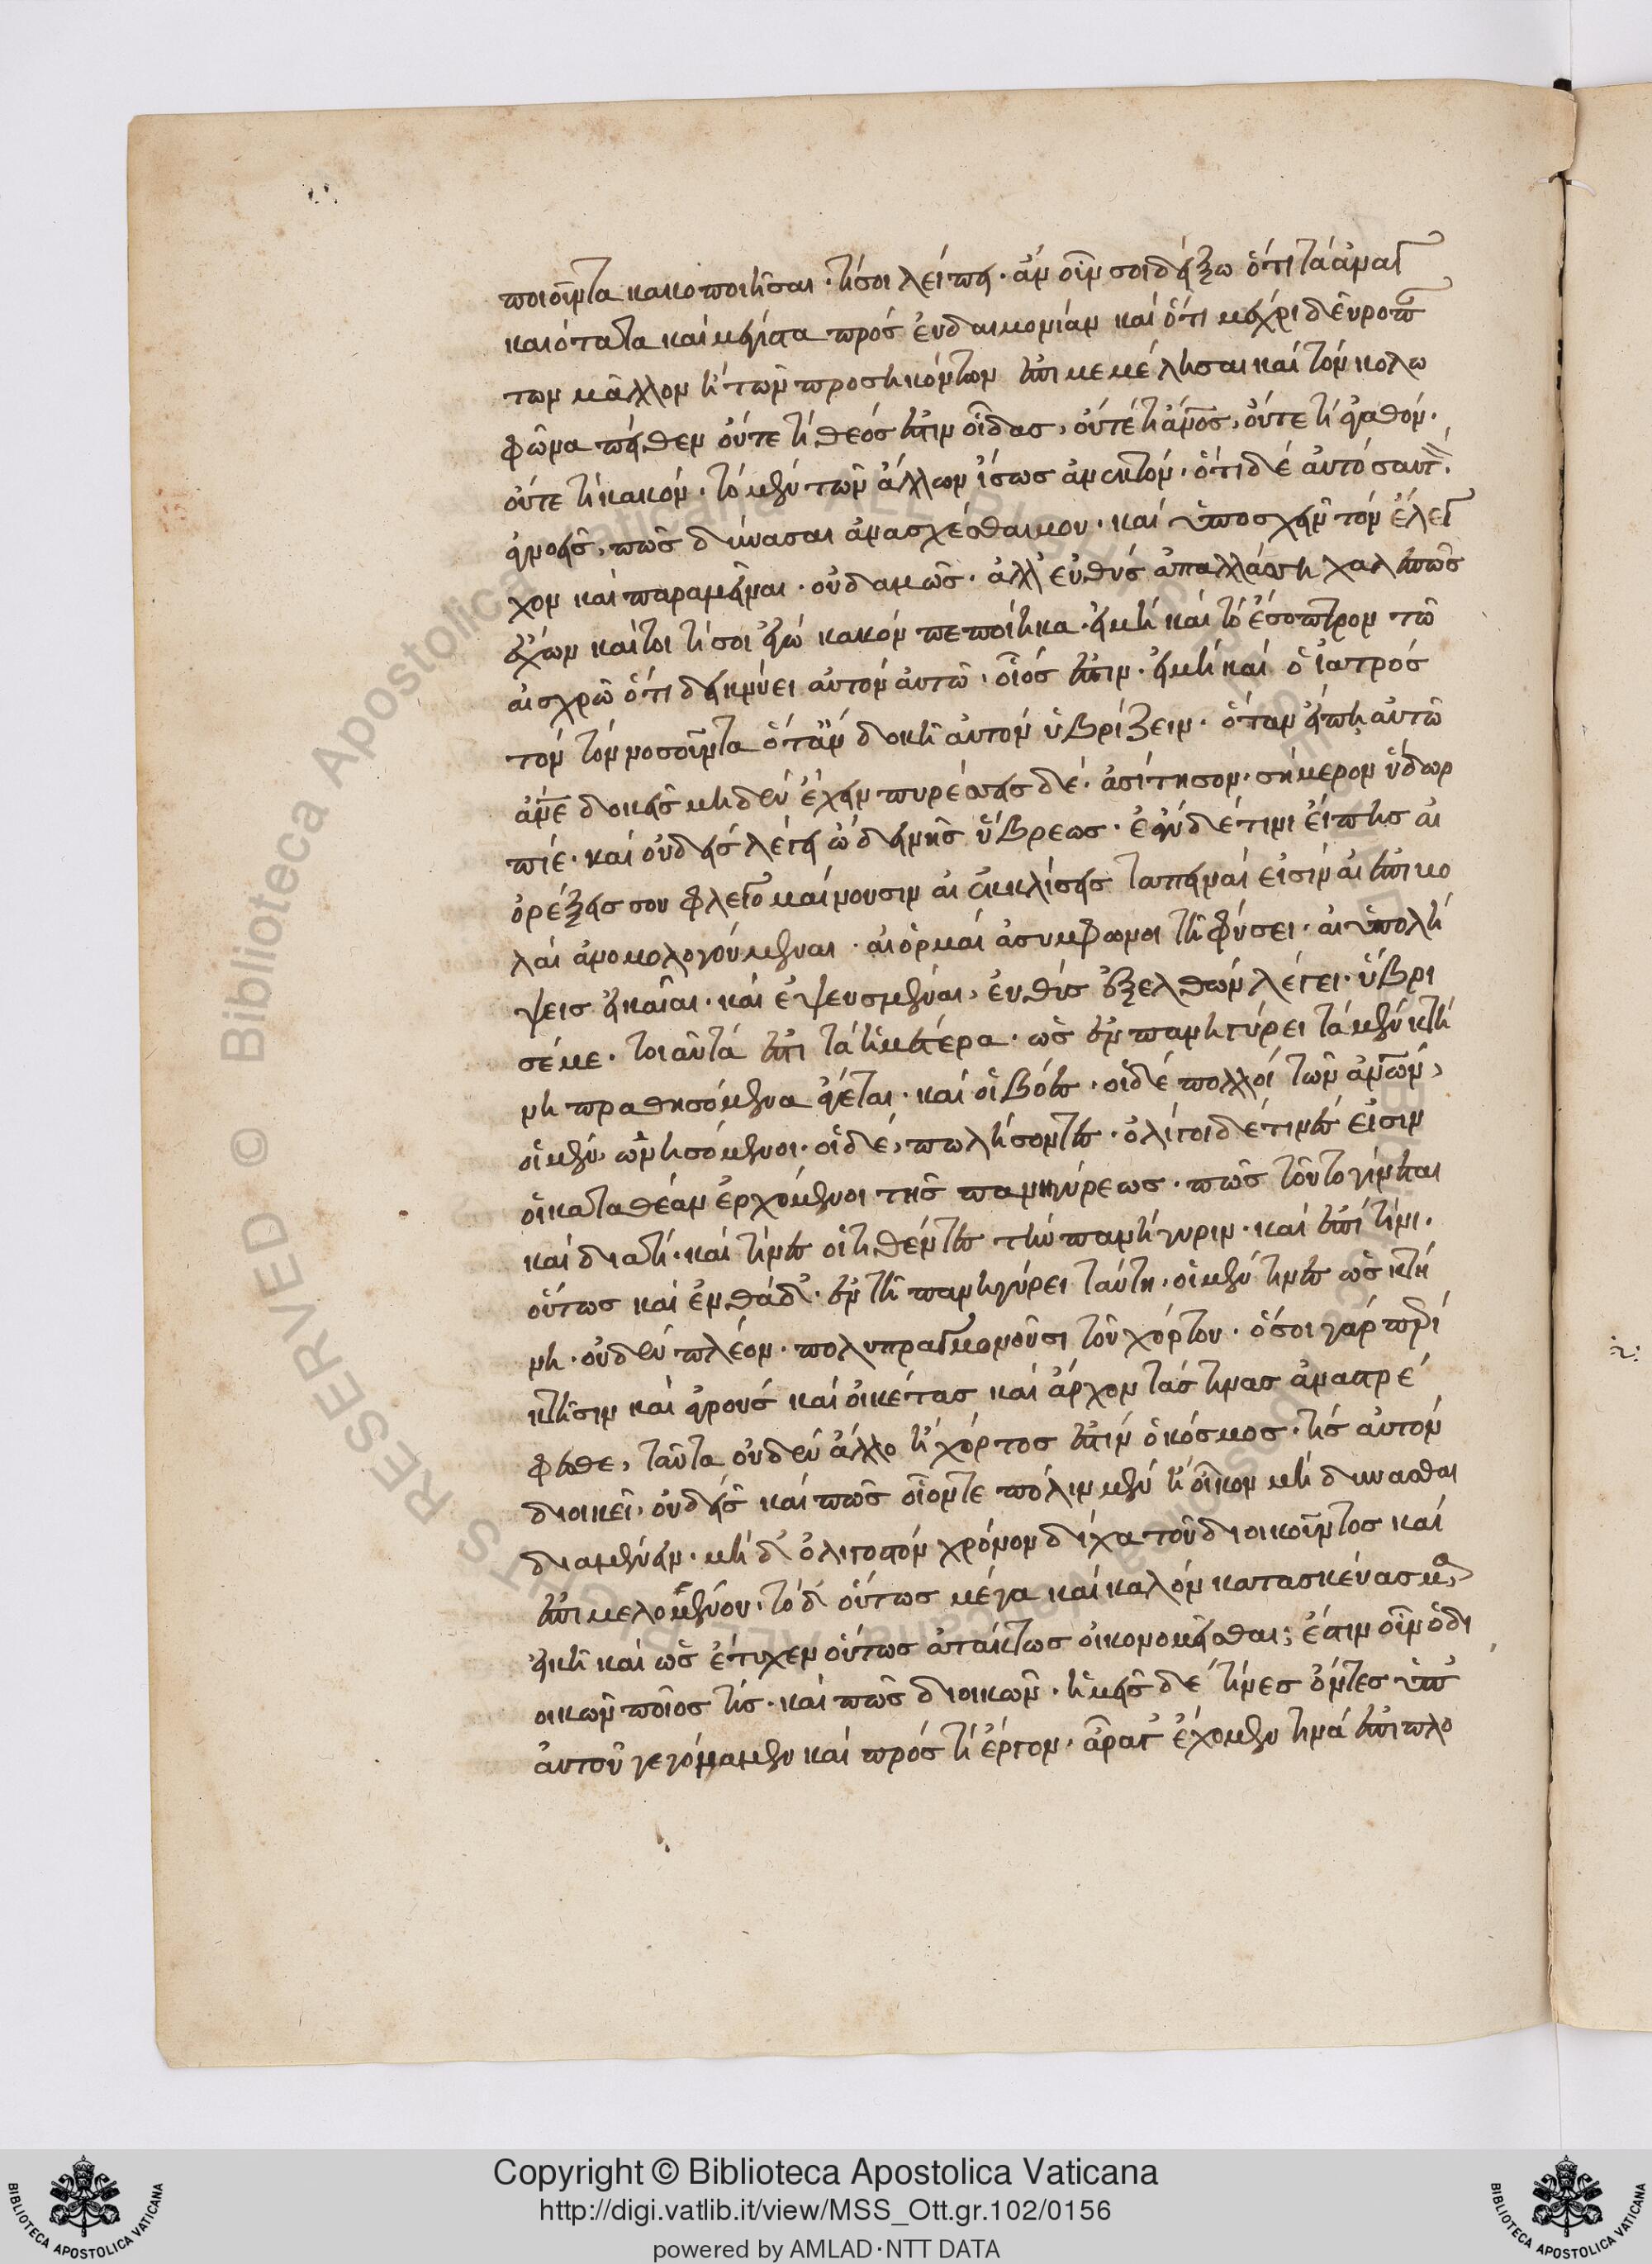 ποιοῦντα κακοποιῆσαι· τί σοι λείπει· ἂν οὖν σοι δείξω ὅτι τὰ ἀναγ
καιότατα καὶ μέγιστα πρὸς εὐδαιμονίαν καὶ ὅτι μέχρι δεῦρο π
των μᾶλλον ἢ τῶν προσηκόντων ἐπιμεμέλησαι καὶ τὸν κολο
φῶνα τιθεὶς οὔτε τί θεός ἐστιν οἶδας, οὔτε τί ἄνος, οὔτε τί ἀγαθόν·
οὔτε τί κακόν· τὸ μὲν τῶν ἄλλων ἴσως ἀνεκτόν· ὅτι δὲ αὐτὸ σαυτ
ἀγνοεῖς, πῶς δύνασαι ἀνασχέσθαι μου· καὶ ὑποσχεῖν τὸν ἔλεγ
χον καὶ παραμεῖναι· οὐδαμῶς· ἀλλ' εὐθὺς ἀπαλλάσση χαλεπῶς
ἔχων καίτοι τί σοι ἐγὼ κακὸν πεποίηκα· εἰ μὴ καὶ τὸ ἔσοπτρον τῶ
αἰσχρῶ ὅτι δεικνύει αὐτὸν αὐτῶ· οἷός ἐστιν· εἰ μὴ καὶ ὁ ἰατρὸς
τὸν τὸν νοσοῦντα ὅταν δοκῆ αὐτὸν ὑβρίζειν· ὅταν εἴπη αὐτῶ
ἄνε δοκεῖς μηδὲν ἔχειν πυρέσσεις δέ· ἀσίτησον· σήμερον ὕδωρ
πίε· καὶ οὐδεὶς λέγει ὦ δεινῆς ὕβρεως· ἐὰν δέ τινι εἴπης αἱ
ὀρέξεις σου φλεγμαίνουσιν αἱ ἐκκλίσεις ταπειναί εἰσιν αἱ ἐπιβο
λαὶ ἀνομολογούμεναι· αἱ ὁρμαὶ ἀσύμφωνοι τῆ φύσει· αἱ ὑπολή
ψεις εἰκαῖαι· καὶ ἐψευσμέναι, εὐθὺς ἐξελθὼν λέγει· ὕβρι
σέ με· τοιαῦτά ἐστι τὰ ἡμέτερα· ὡς ἐν πανηγύρει τὰ μὲν κτή
νη πραθησόμενα ἄγεται· καὶ οἱ βόες· οἱ δὲ πολλοὶ τῶν ἀνων,
οἱ μὲν, ὠνησόμενοι· οἱ δέ, πωλήσοντες· ὀλίγοι δέ τινές εἰσιν
οἱ κατὰ θέαν ἐρχόμενοι τῆς πανηγύρεως· πῶς τοῦτο γίνεται
καὶ διατί· καὶ τίνες οἱ τιθέντες τὴν πανήγυριν· καὶ ἐπὶ τίνι·
οὕτως καὶ ἐνθάδ' ἐν τῆ πανηγύρει ταύτη· οἱ μὲν τινες ὡς κτή
νη· οὐδὲν πλέον· πολυπραγμονοῦσι τοῦ χόρτου· ὅσοι γὰρ περὶ
κτῆσιν καὶ ἀγροὺς καὶ οἰκέτας καὶ ἀρχὰς τινας ἀναστρέ
φεσθε, ταῦτα οὐδὲν ἄλλο ἢ χόρτος ἐστὶν ὁ κόσμος· τίς αὐτὸν
διοικεῖ, οὐδείς καὶ πῶς οἷόν τε πόλιν μὲν ἢ οἶκον μὴ δύνασθαι
διαμένειν· μὴ δ' ὀλιγοστὸν χρόνον δίχα τοῦ διοικοῦντος καὶ
ἐπιμελομένου· τὸ δ' οὕτως μέγα καὶ καλὸν κατασκεύασμα
εἰκῆ καὶ ὡς ἔτυχεν οὕτως ἀτάκτως οἰκονομεῖσθαι; ἔστιν οὖν ὁ δι
οικῶν ποῖός τις· καὶ πῶς διοικῶν· ἡμεῖς δὲ τίνες ὄντες ὑπ'
αὐτοῦ γεγόναμεν καὶ πρὸς τί ἔργον· ἆρά γ' ἔχομέν τινα ἐπιπλο
Copyright © Biblioteca Apostolica Vaticana
http://digi.vatlib.it/view/MSS_Ott.gr.102/0156
powered by AMLAD·NTT DATA
BIBLIOTECA APOSTOLICA VATICANA
BIBLIOTECA APOSTOLICA VATICANA